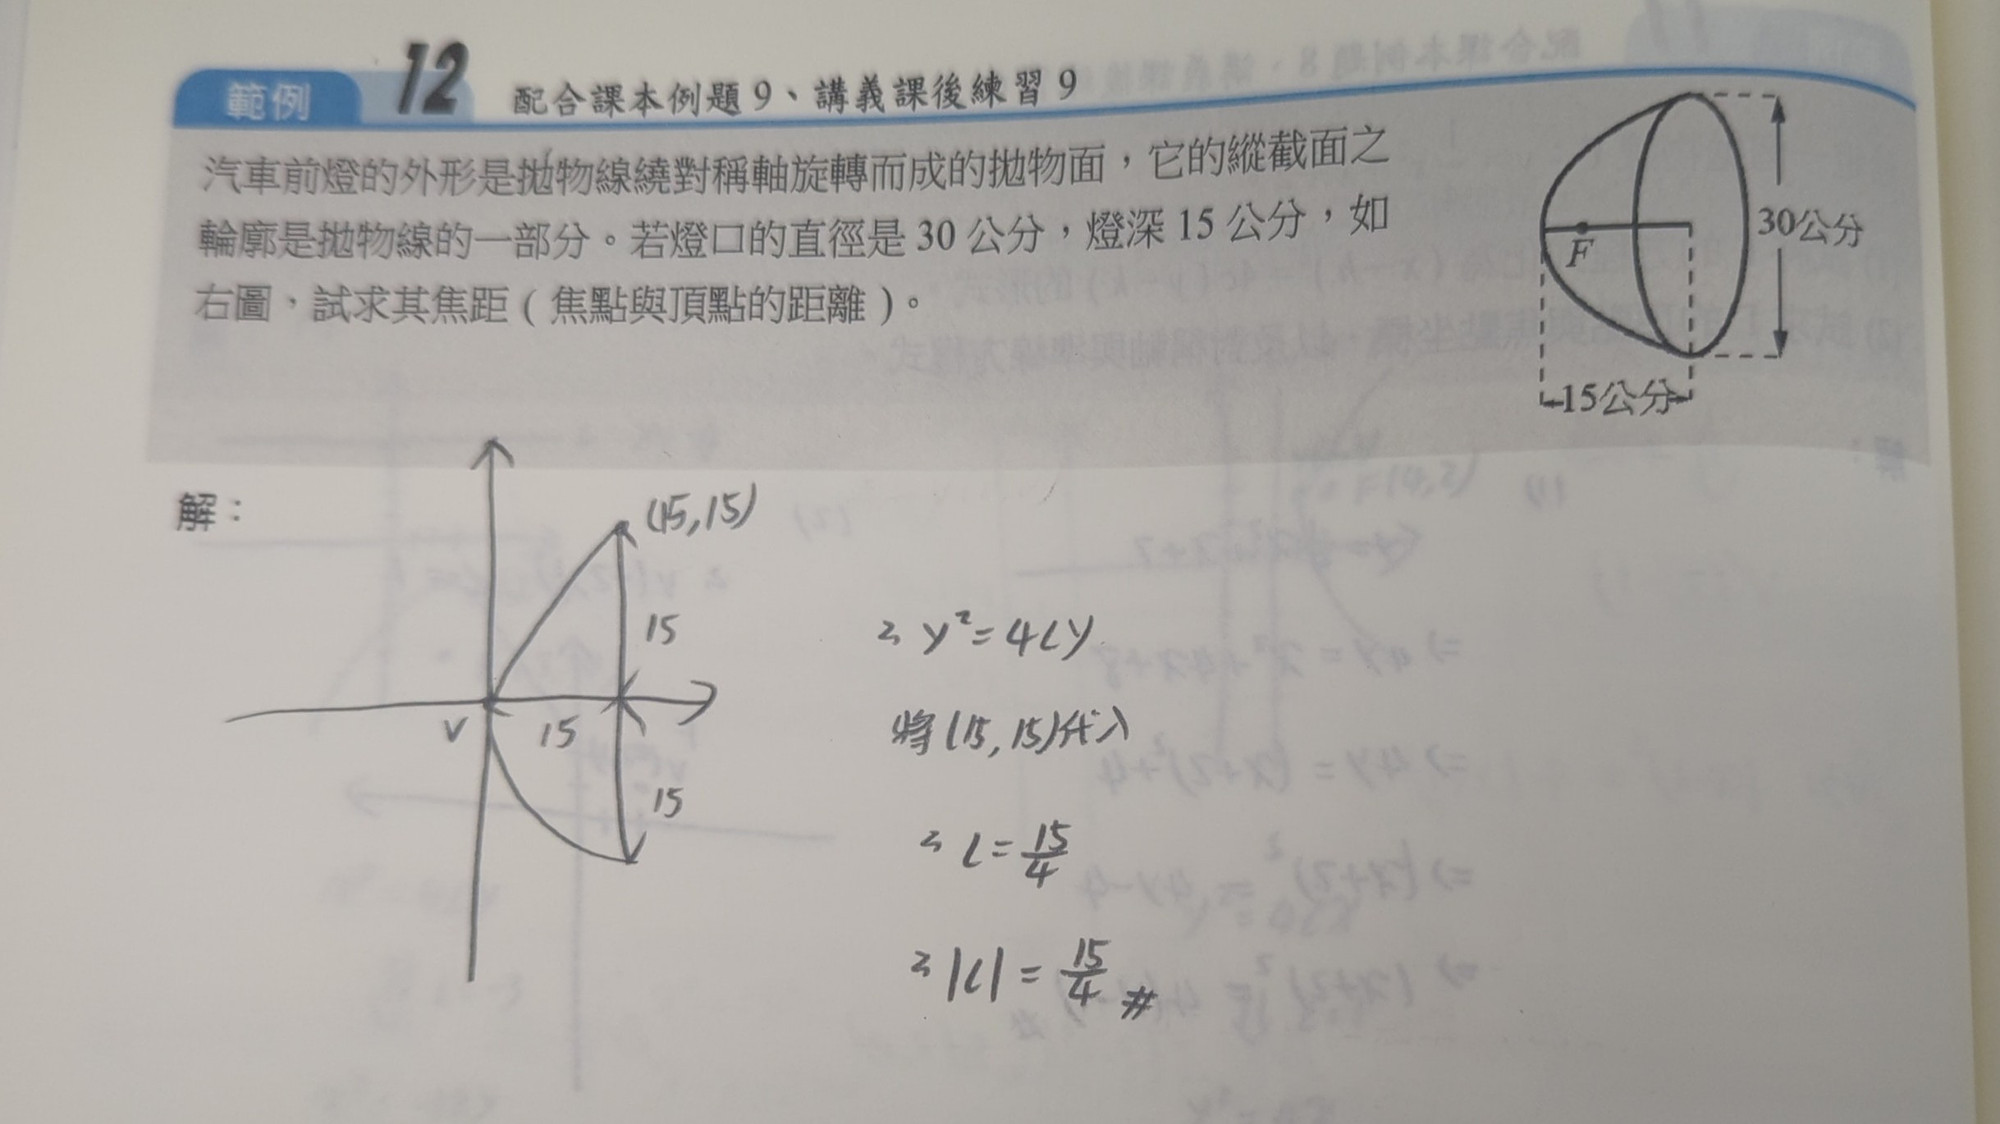 範例 12 配合課本例題 9、講義課後練習 9
汽車前燈的外形是拋物線繞對稱軸旋轉而成的拋物面，它的縱截面之
輪廓是拋物線的一部分。若燈口的直徑是 30 公分，燈深 15 公分，如
右圖，試求其焦距 ( 焦點與頂點的距離 )。
F
30公分
15公分
解：
(15,15)
15
V
15
15
y²=4cy
將(15,15)代入
c=15/4
|c|=15/4 #